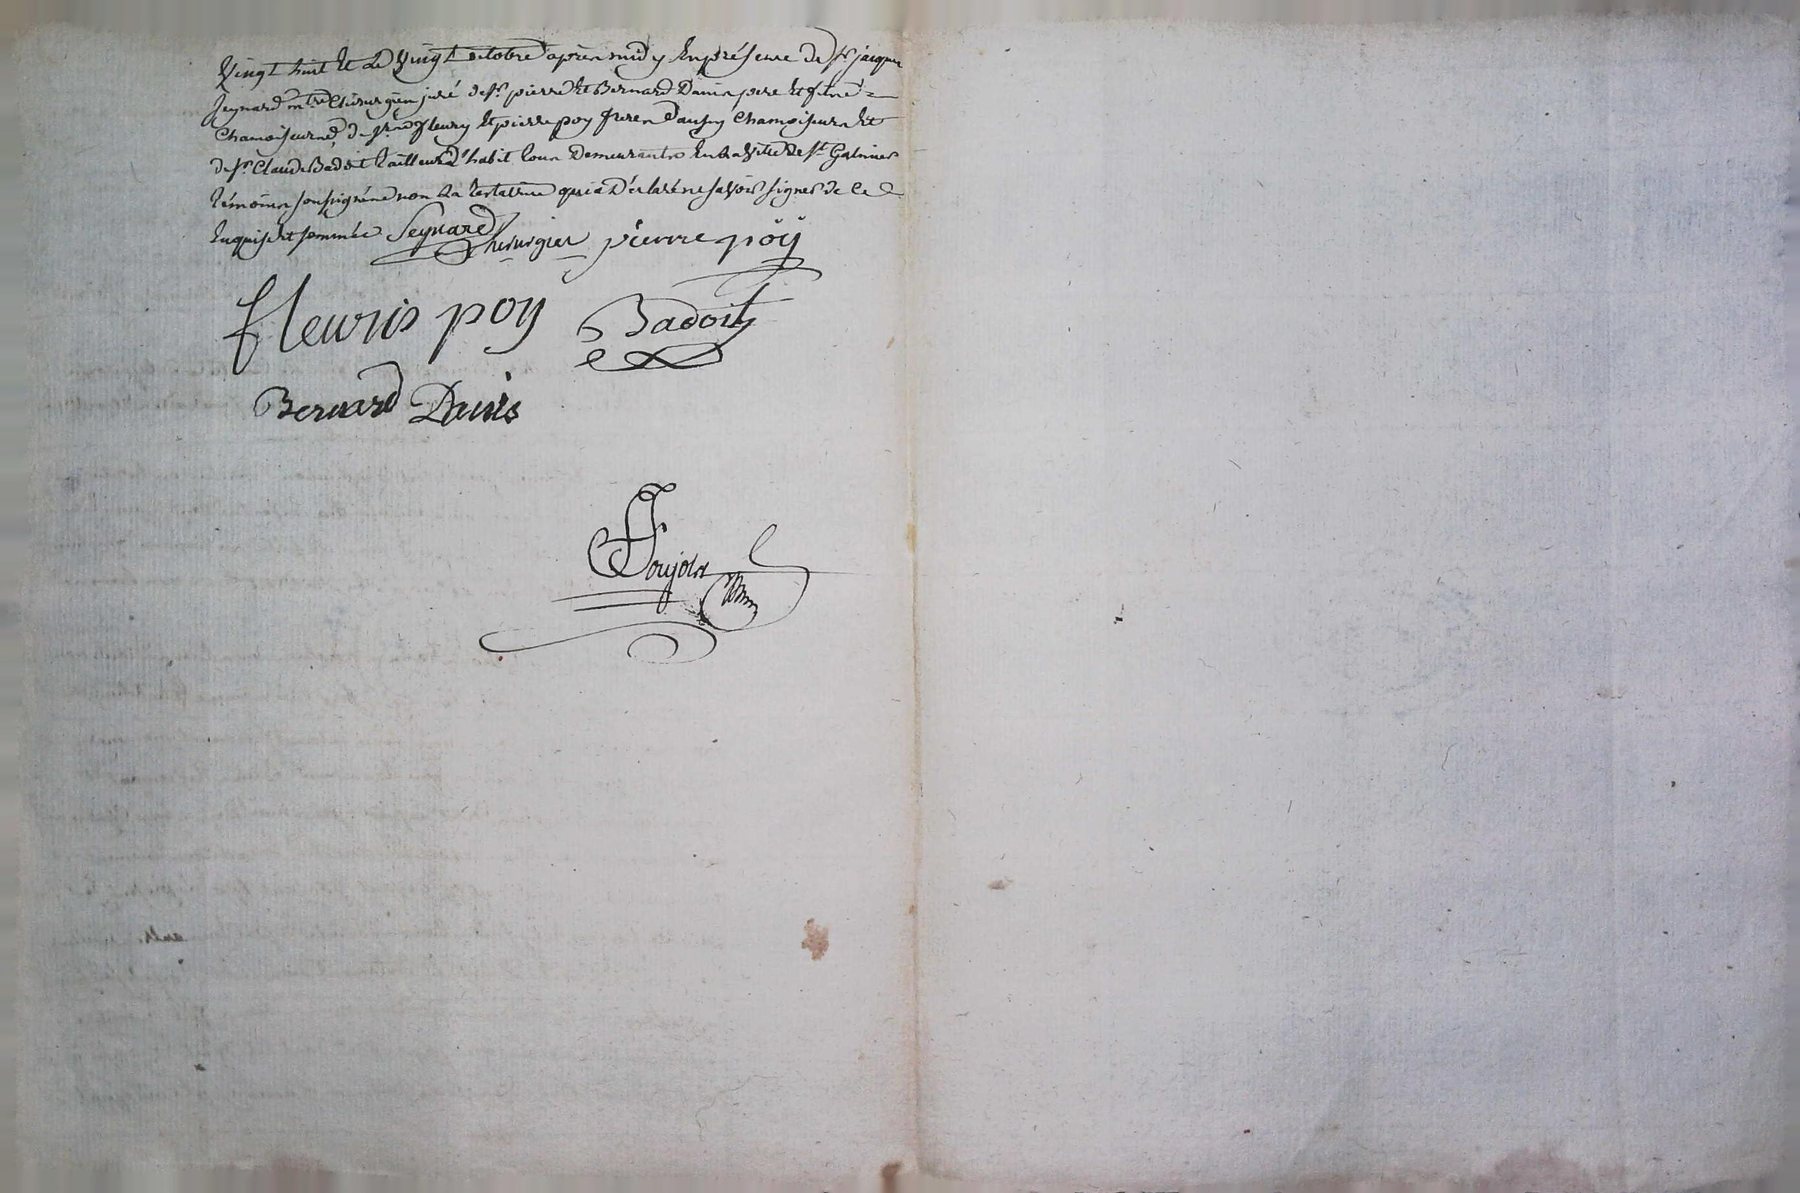 Vingt huit et Le Vingt octobre après midy En présence de Sr jacques
Seynard mtre Chirurgien juré de Sr pierre Et Bernard Danis pere Et fils
Chamoiseurs, de Fleury Et pierre poy freres aussy Chamoiseurs Et
de Sr Claude Badoit tailleur d'habit tous Demeurants En La Ville de St Galmier
témoins soussignés non La testatrice qui a Déclaré ne savoir signer de Ce
Enquise Et sommée Seynard Chirurgien pierre poÿ
fleuris poy Badoit
Bernard Danis